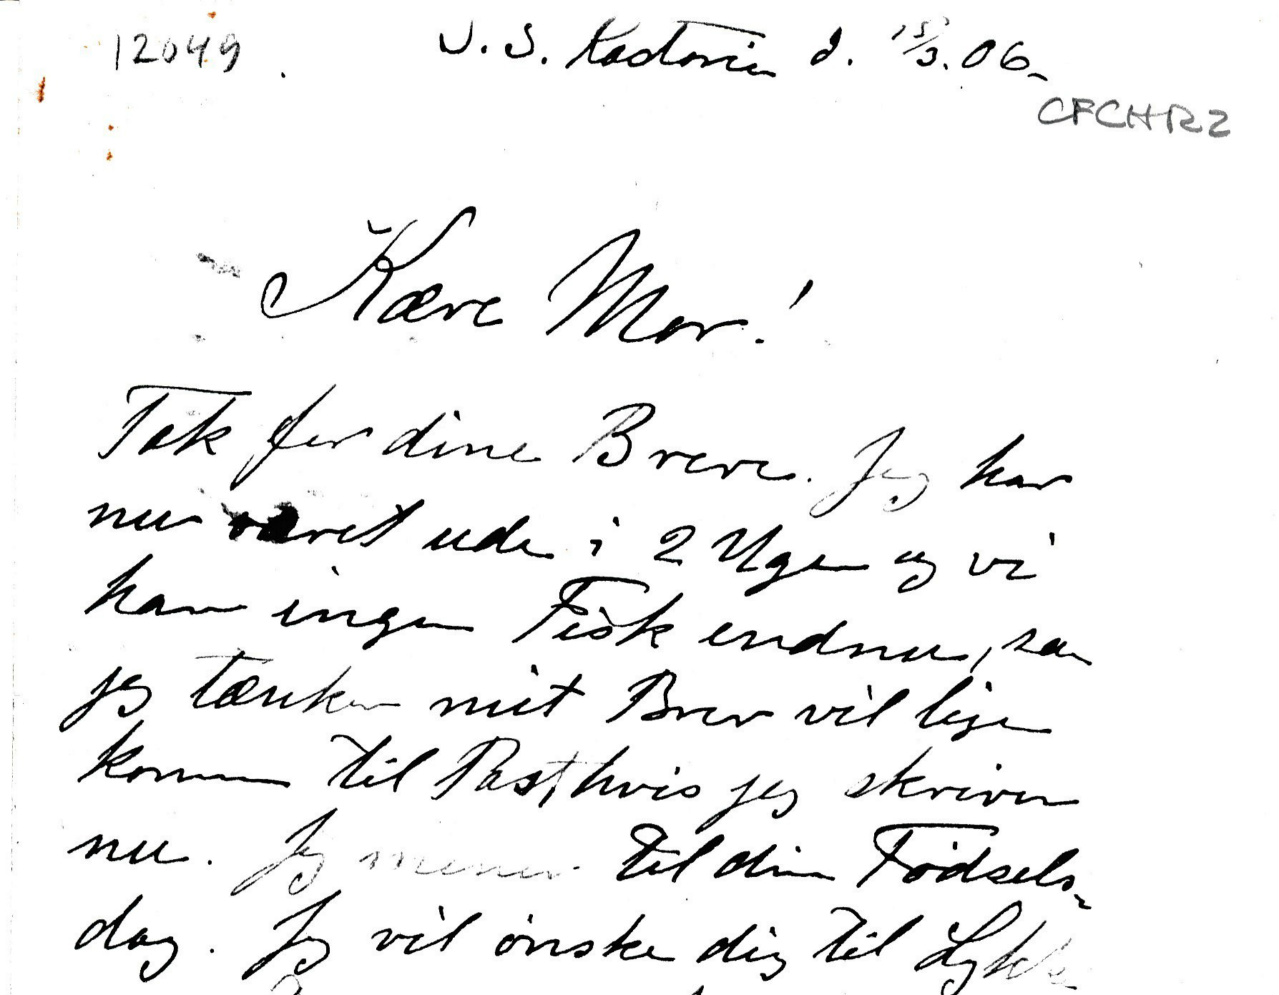 12049.
U. S. Kastonia d. 15/3. 06.
CFCHRZ
Kære Mor!
Tak for dine Breve. Jeg har
nu været ude i 2 Uger og vi
har ingen Fisk endnu, saa
jeg tænker mit Brev vil lige
komme til Pas, hvis jeg skriver
nu. Jeg mener til din Fødsels-
dag. Jeg vil ønske dig til Lykke